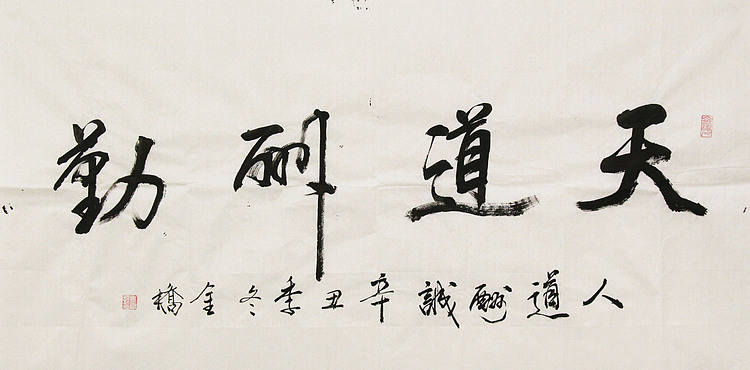 天道酬勤
人道酬誠辛丑季冬金橋